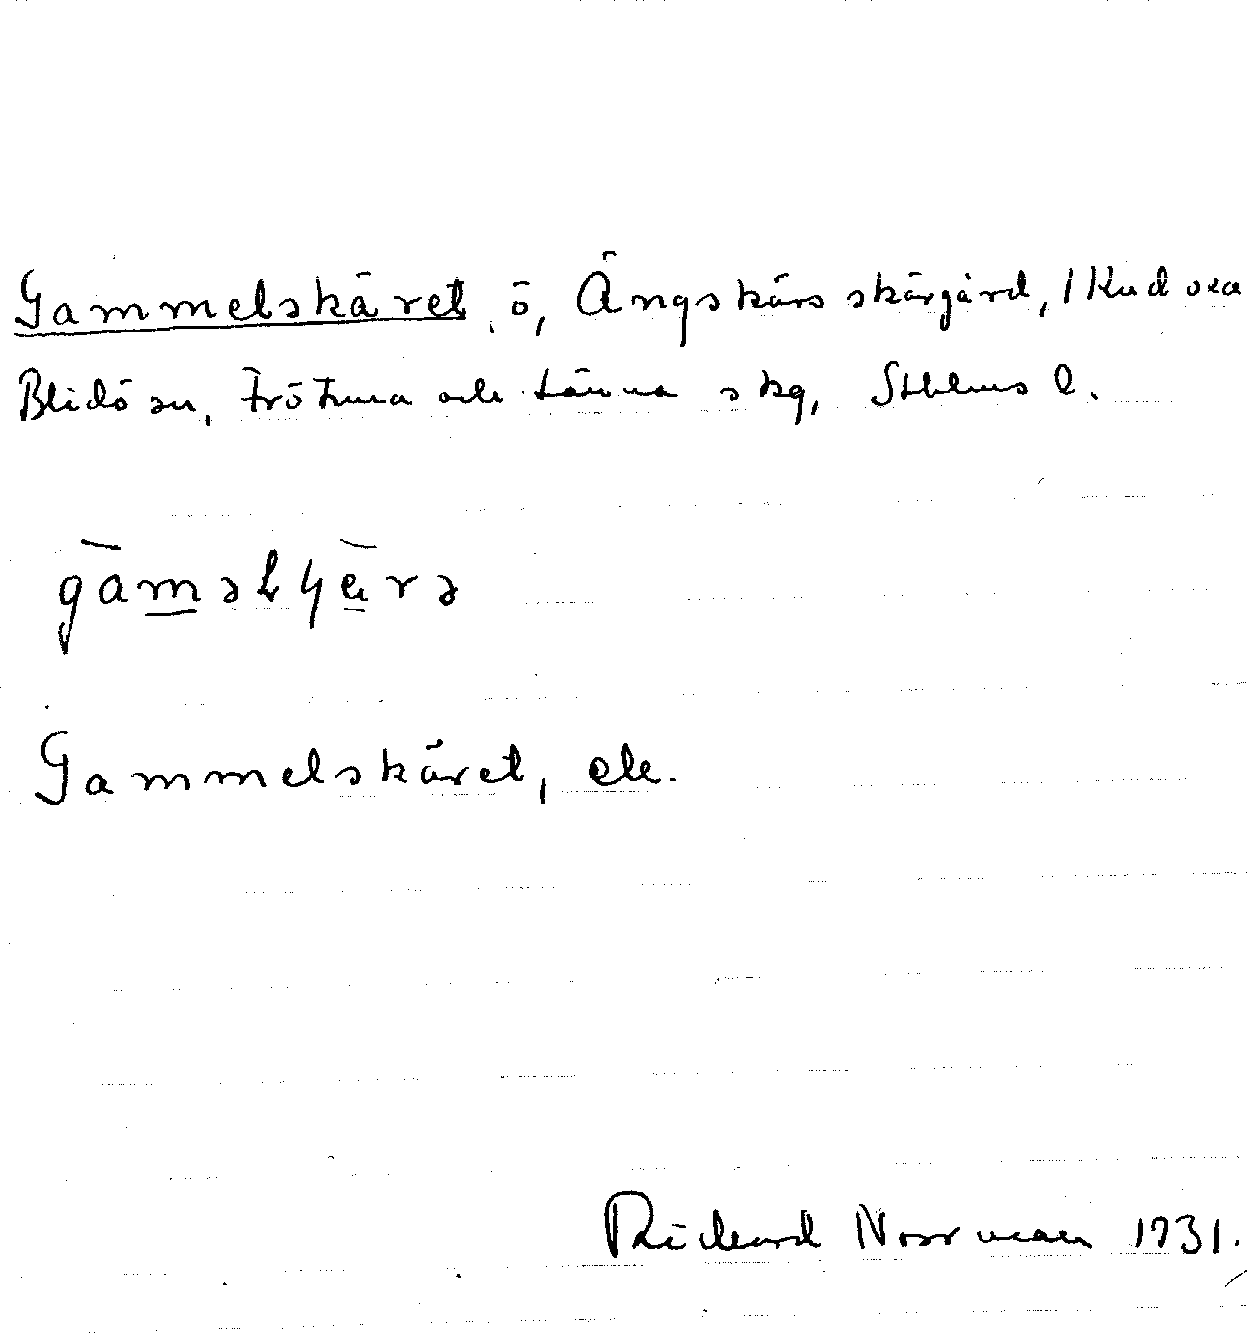 Gammelskäret, ö, Ängskärs skärgård, 1 Kudoxa
Blidö sn, Frötuna och Länna skg, Sthlms l.
gāməlɥǟrə
Gammelskäret, ek.
Rickard Norrman 1931.